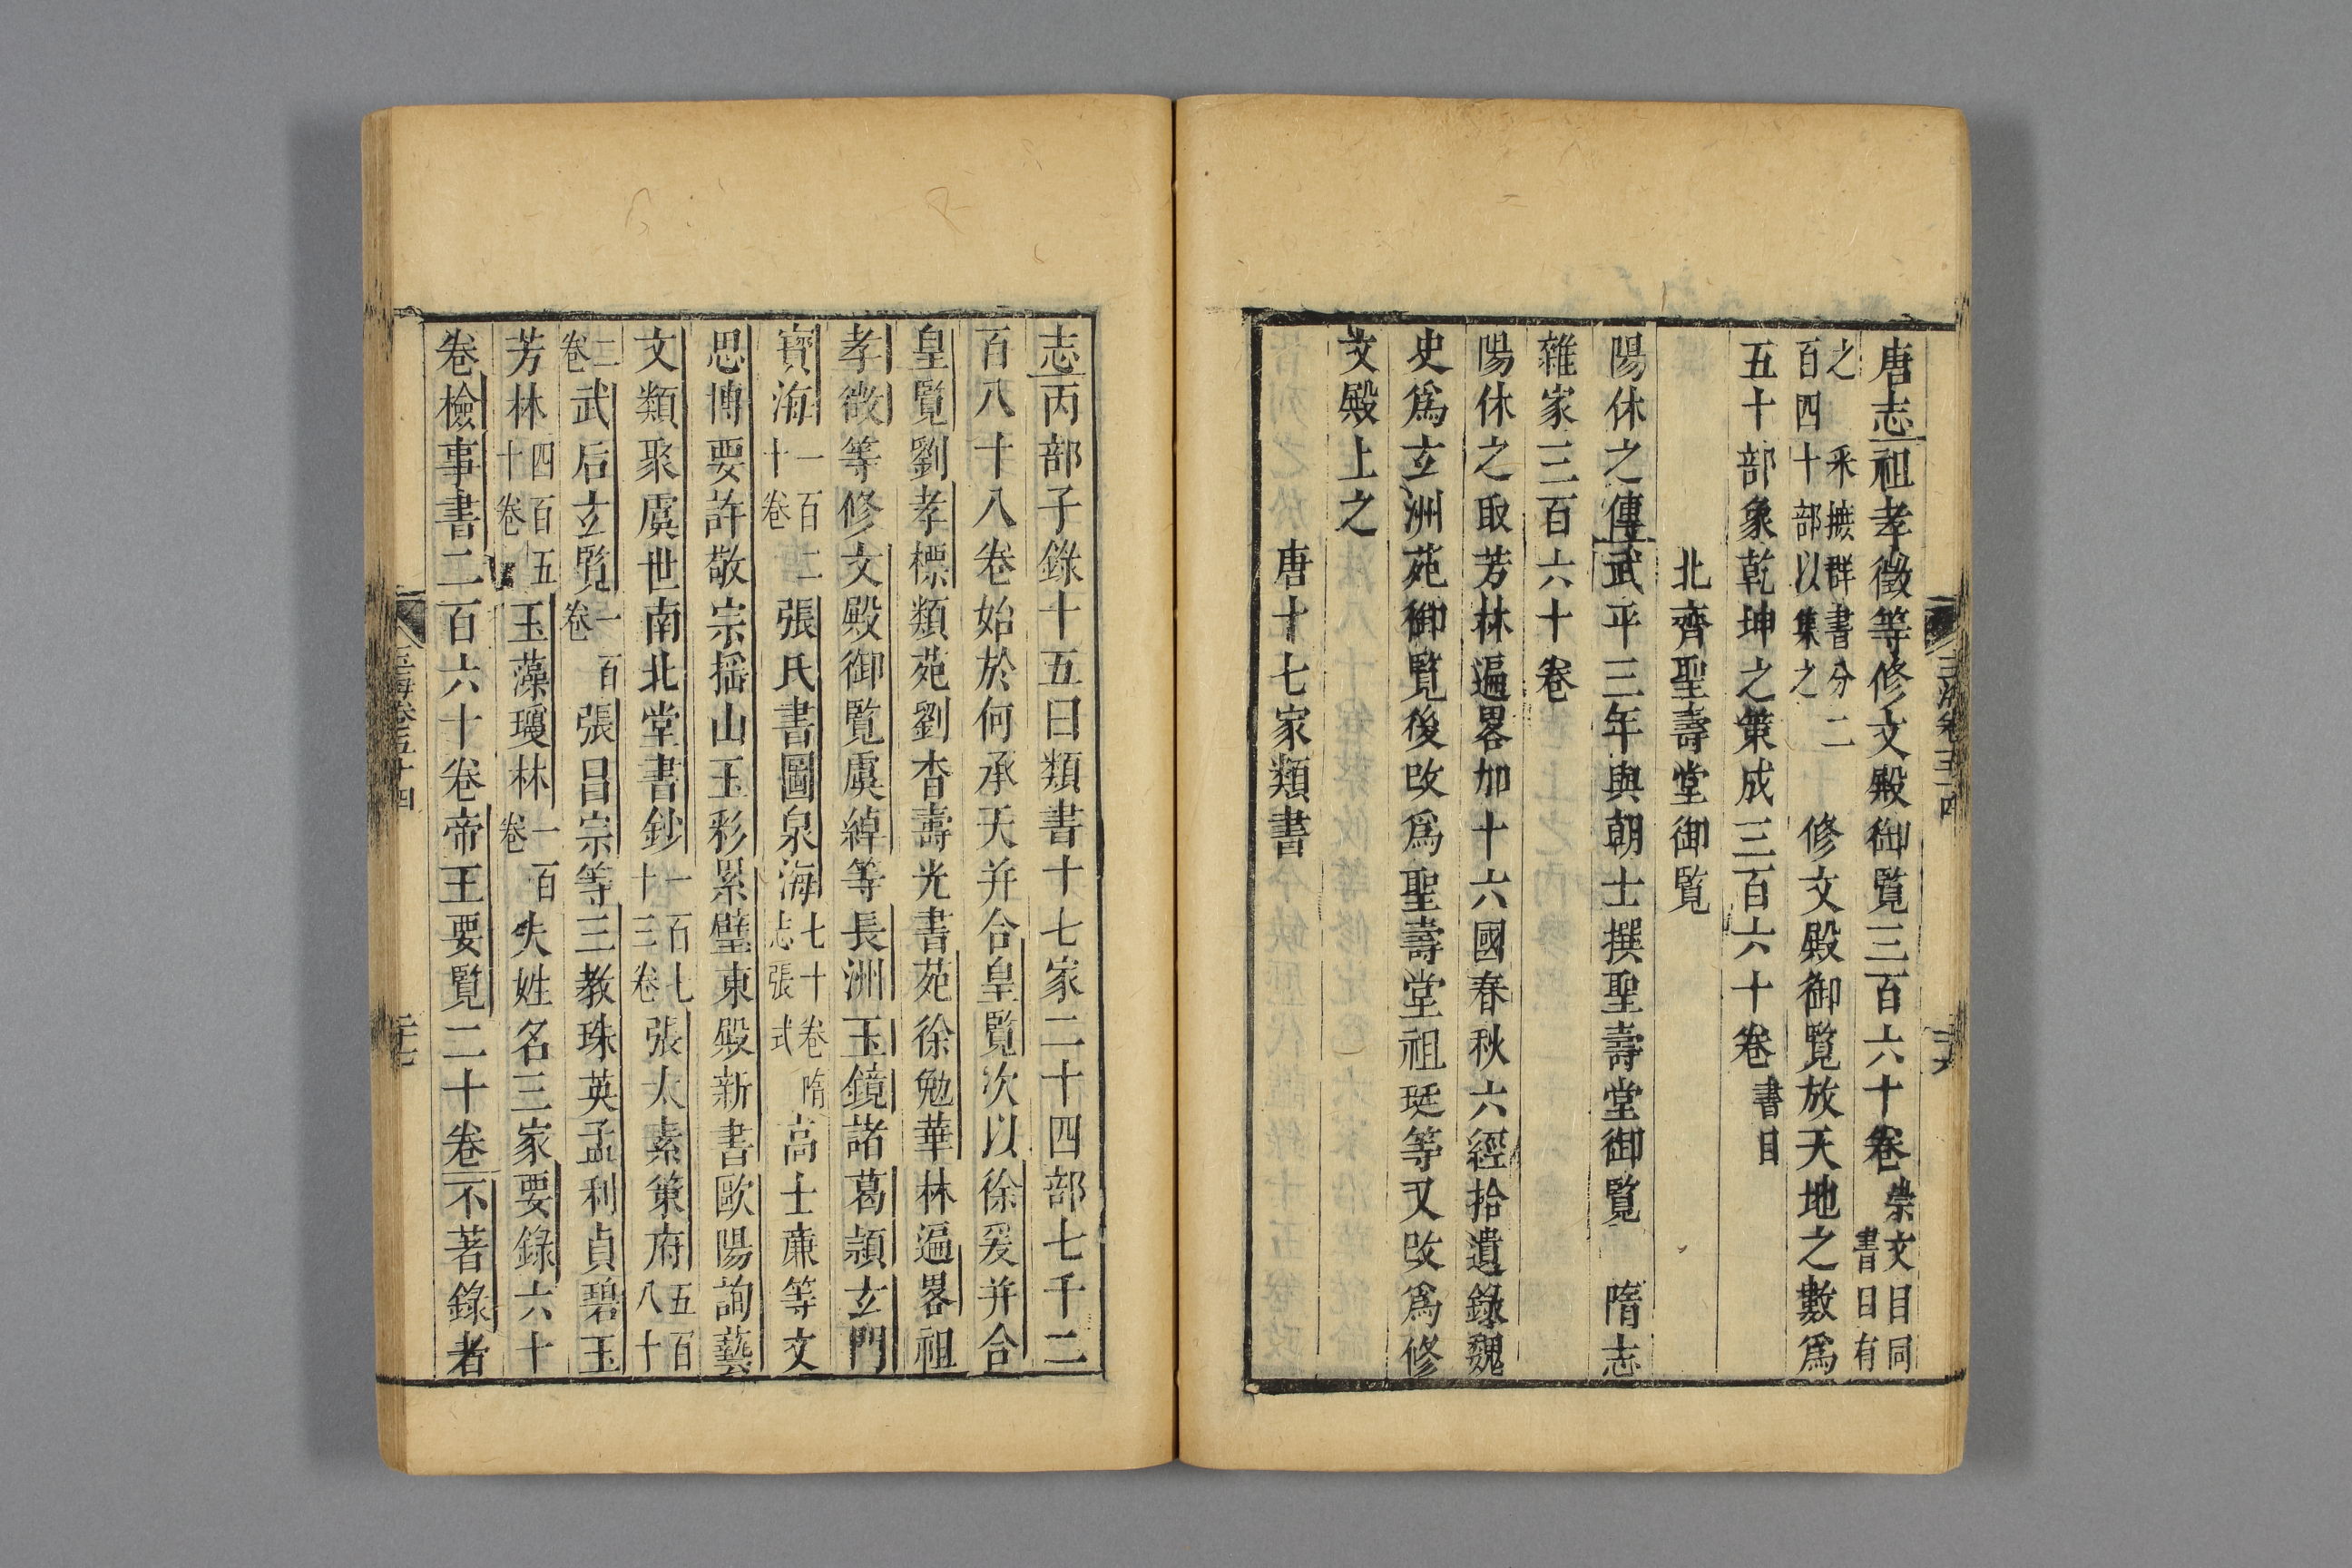 唐志祖孝徵等修文殿御覧三百六十卷崇文目同書目有
之采摭群書分二百四十部以集之修文殿御覧放天地之數爲
五十部象乾坤之策成三百六十卷書目
北齊聖壽堂御覧
陽休之傳武平三年與朝士撰聖壽堂御覧 隋志
雜家三百六十卷
陽休之取芳林遍畧加十六國春秋六經拾遺錄魏
史爲玄洲苑御覧後改爲聖壽堂祖珽等又改爲修
文殿上之
唐十七家類書
玉海卷五十四
二十六
志丙部子錄十五曰類書十七家二十四部七千二
百八十八卷始於何承天并合皇覧次以徐爰并合
皇覧劉孝標類苑劉杳壽光書苑徐勉華林遍畧祖
孝徵等修文殿御覧虞綽等長洲玉鏡諸葛頴玄門
寳海一百二十卷張氏書圖泉海七十卷隋志張式高士廉等文
思博要許敬宗揺山玉彩累璧東殿新書歐陽詢藝
文類聚虞世南北堂書鈔一百七十三卷張太素策府五百八十
二卷武后玄覧一百卷張昌宗等三教珠英孟利貞碧玉
芳林四百五十卷玉藻瓊林一百卷失姓名三家要錄六十
卷檢事書二百六十卷帝王要覧二十卷不著錄者
玉海卷五十四
二十七